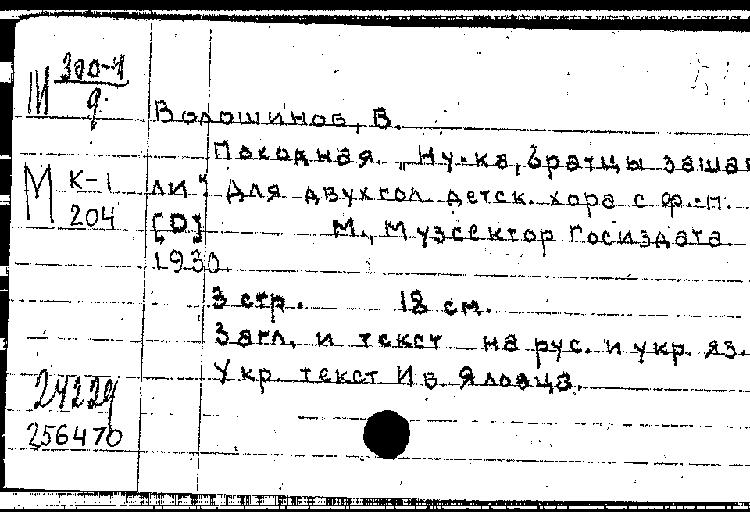 Ш 300-4
д.
Волошинов, В.
Походная. „Ну-ка, братцы зашаг
М К-1 ли" Для двухгол. детск. хора с ф.-п.
204 [D] М., Музсектор Госиздата
1930.
3 стр. 18 см.
Загл. и текст на рус. и укр. яз.
Укр. текст Ив. Яловца.
24229
256470